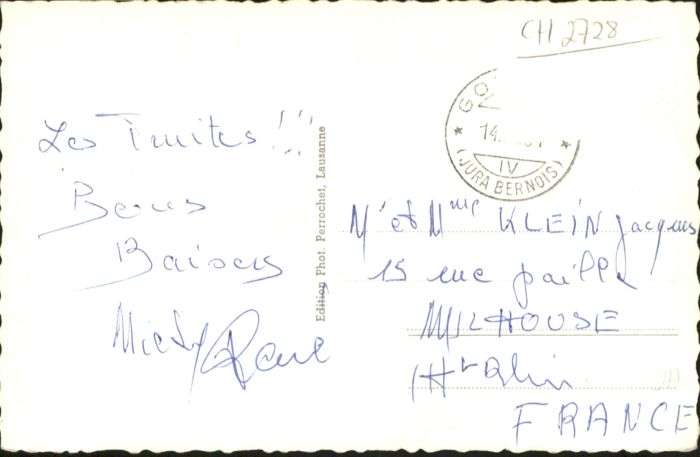 CH 2728
GO
14.
IV
(JURA BERNOIS)
Les Truites !!!
Bons
Baisers
Edition Phot. Perrochet, Lausanne
Mr et Mme KLEIN Jacques
15 rue paille
MILHOUSE
Ht Rhin
FRANCE